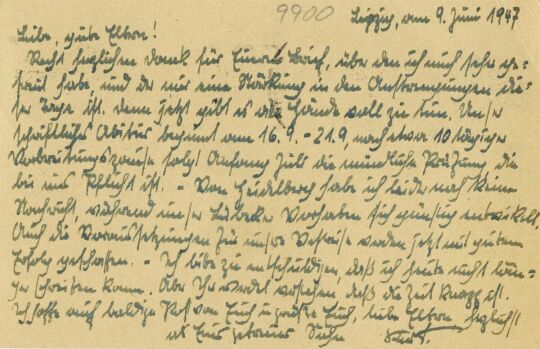 9900
Leipzig, am 9. Juni 1947
Liebe, gute Eltern!
Recht herzlichen Dank für Eueren Brief, über den ich mich sehr ge=
freut habe, und der mir eine Stärkung in den Anstrengungen die=
ser Tage ist. Denn jetzt gibt es alle Hände voll zu tun. Unser
schriftliches Abitur beginnt am 16.9. - 21.9, nach etwa 10 tägiger
Vorbereitungspause folgt Anfang Juli die mündliche Prüfung die
bei uns Pflicht ist. - Von Heidelberg habe ich leider noch keine
Nachricht, während unser Lübecker Vorhaben sich günstig entwickelt,
Auch die Voraussetzungen für unsere werden jetzt mit gutem
Erfolg geschaffen. - Ich bitte zu entschuldigen, daß ich heute nicht län=
ger schreiben kann. Aber Ihr werdet verstehen, daß die Zeit knapp ist.
Ich hoffe auf baldige Post von Euch u. grüße Euch, liebe Eltern herzlichst
als Euer getreuer